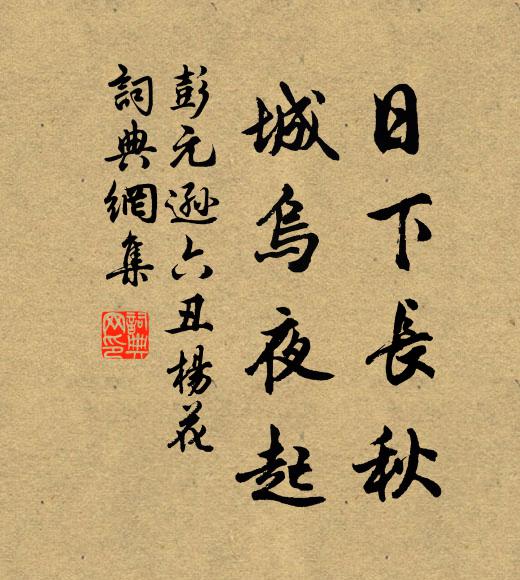 日下長秋
城烏夜起
彭元遜六丑楊花
詞典網集
詞典
网印